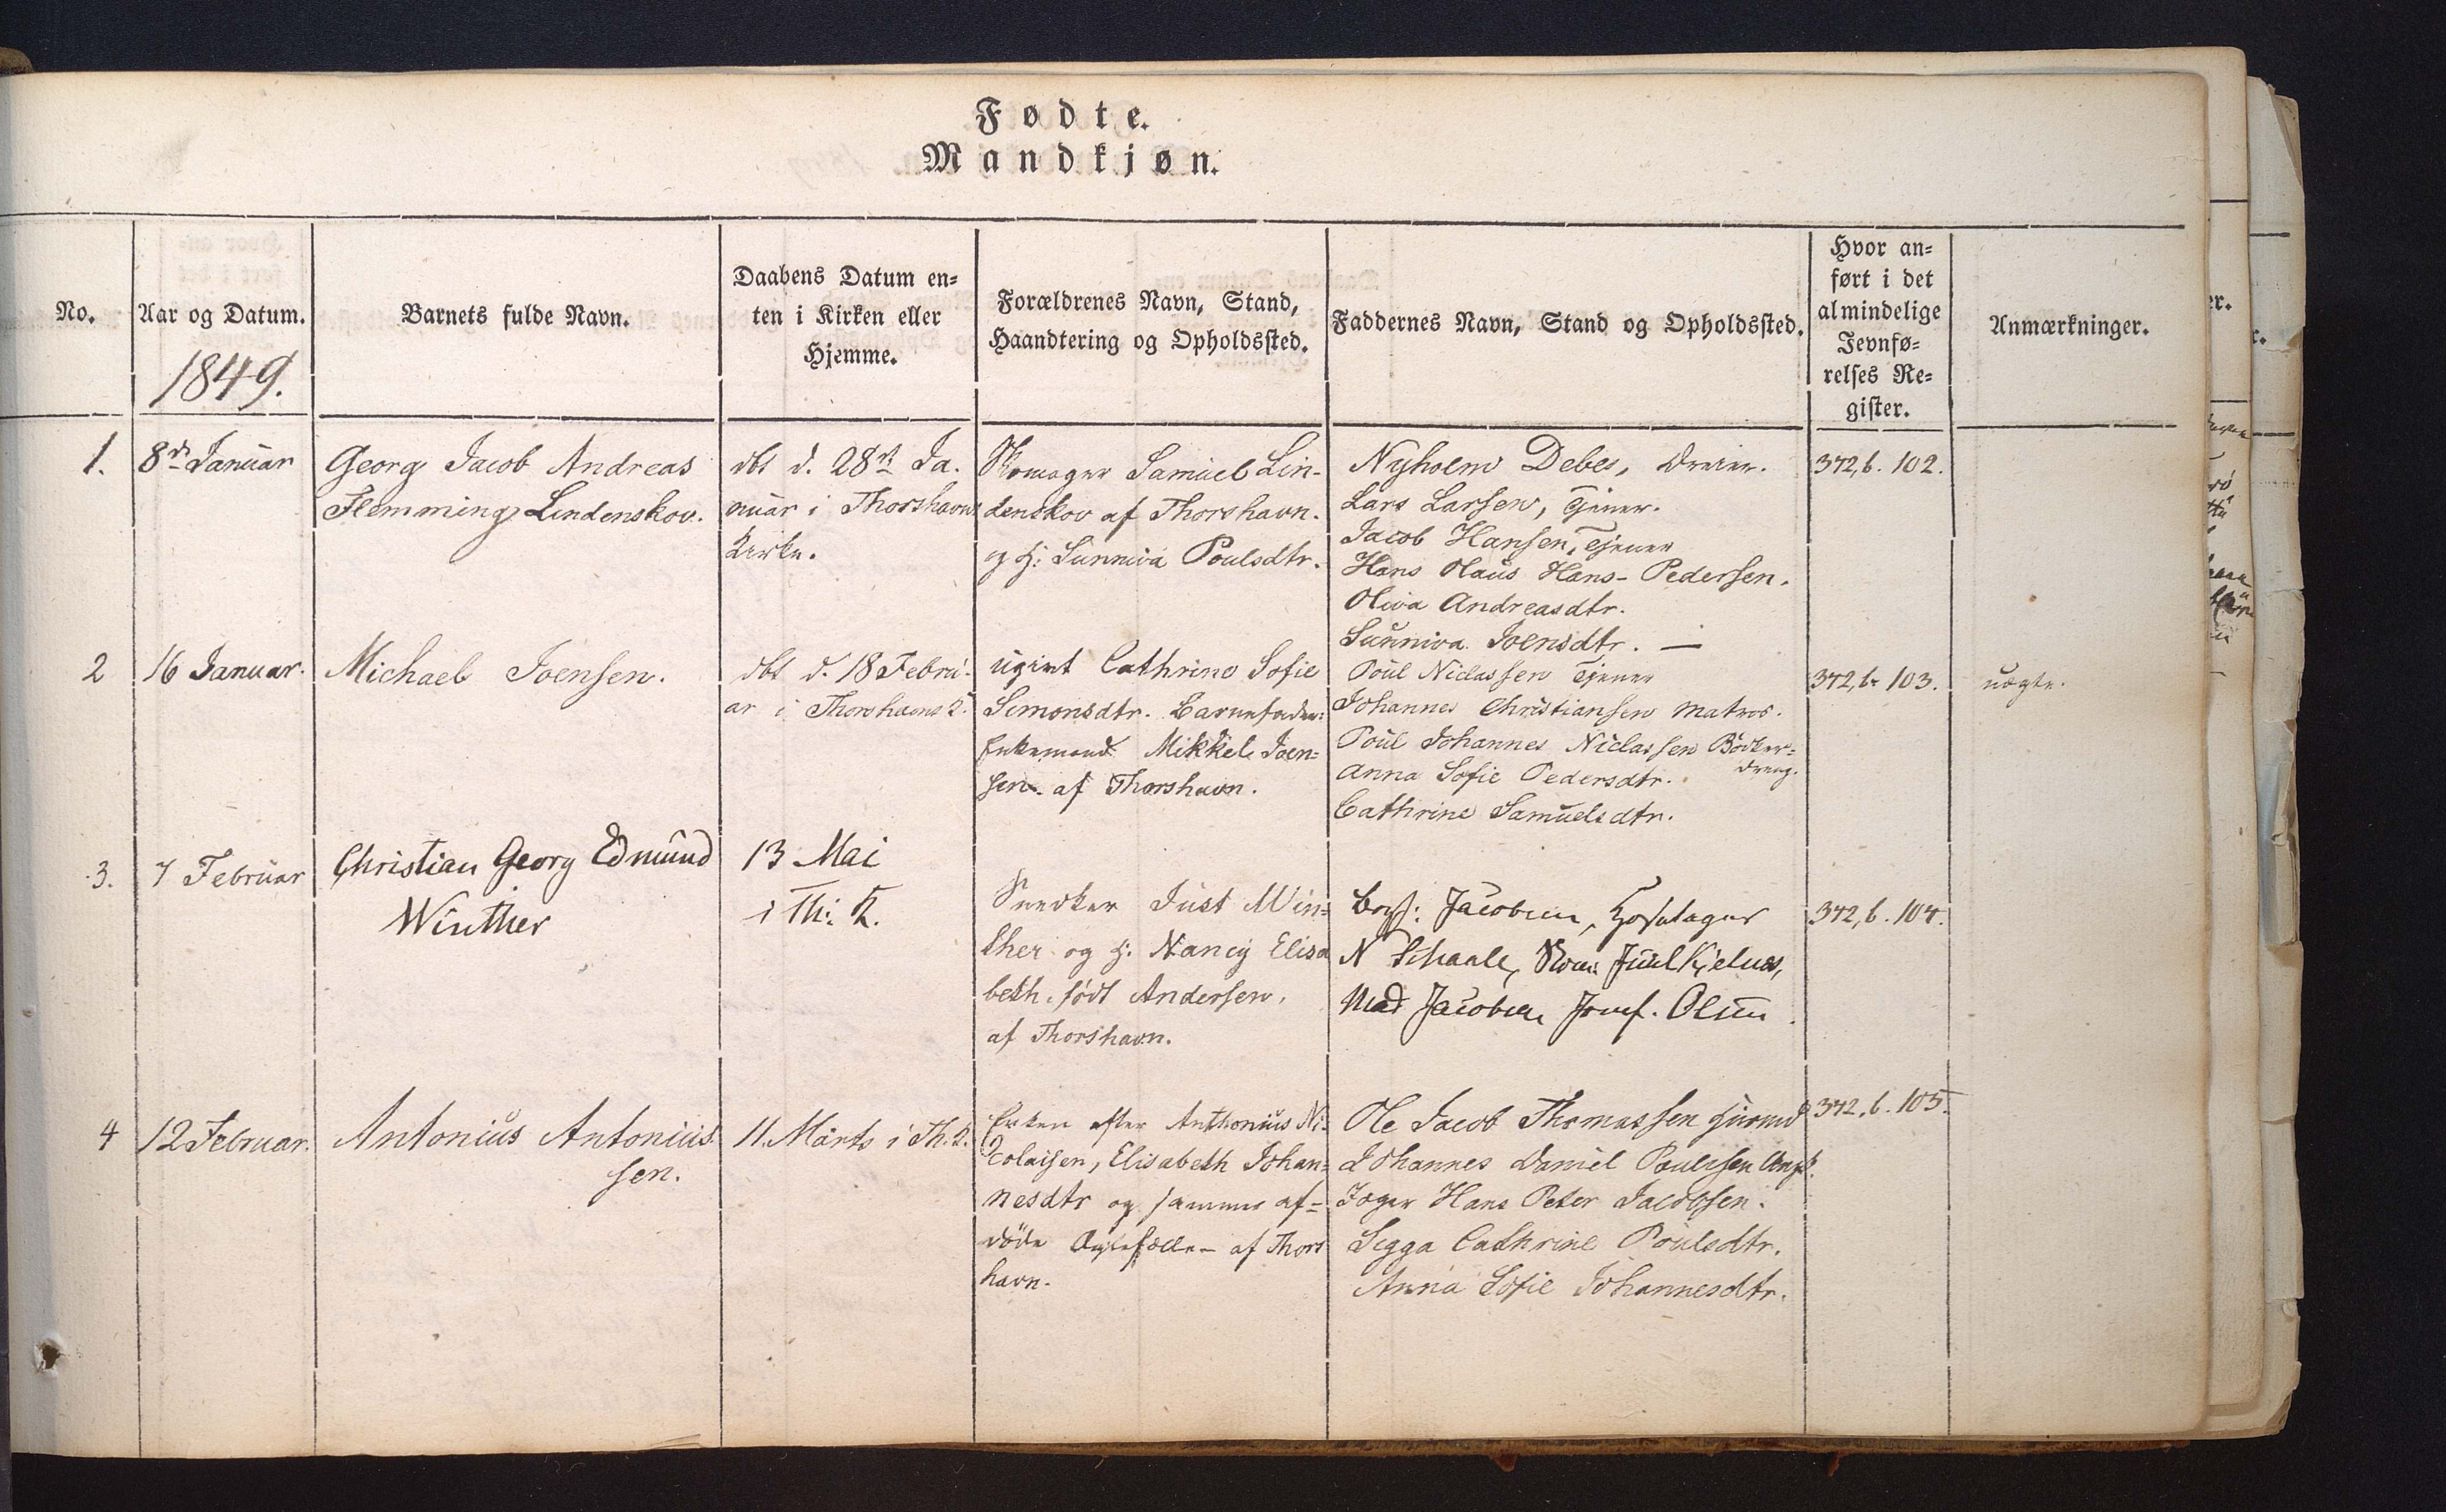 Fødte.
Mandkjøn.
No.
Aar og Datum.
1849.
Barnets fulde Navn.
Daabens Datum en=
ten i Kirken eller
Hjemme.
Forældrenes Navn, Stand,
Haandtering og Opholdssted.
Faddernes Navn, Stand og Opholdssted.
Hvor an=
ført i det
almindelige
Jevnfø=
relses Re=
gister.
Anmærkninger.
1.
8de Januar
Georg Jacob Andreas
Flemming Lindenskov.
dbt d. 28de Ja.
nuar i Thorshavns
Kirke.
Skomager Samuel Lin-
denskov af Thorshavn.
og H: Sunniva Poulsdtr.
Nyholm Debes, Dreier.
Lars Larsen, Tjener.
Jacob Hansen, Tjener
Hans Olaus Hans-Pedersen.
Oliva Andreasdtr.
Sunniva Joensdtr. —
372, b. 102.
2
16 Januar.
Michael Joensen.
dbt d. 18 Febru-
ar i Thorshavns K.
ugivt Cathrine Sofie
Simonsdtr. Barnefader:
Enkemand Mikkel Joen=
sen af Thorshavn.
Poul Niclassen Tjener
Johannes Christiansen Matros.
Poul Johannes Niclassen Bödker=
dreng.
Anna Sofie Pedersdtr.
Cathrine Samuelsdtr.
372, b. 103.
uægte.
3.
7 Februar
Christian Georg Edmund
Winther
13 Mai
i Th: K.
Snedker Just Win=
ther og H. Nancy Elisa
beth, født Andersen,
af Thorshavn.
Jacobsen,
N
Mad Jacobsen Jomf. Olsen
372, b. 104.
4
12 Februar.
Antonius Antonius
sen.
11. Marts i Th. K.
Enken efter Anthonius Ni-
colaisen, Elisabeth Johan=
nesdtr og sammes af=
döde Ægtefælle - af Thors
havn.
Ole Jacob Thomassen
Johannes Daniel Poulsen
Jæger Hans Peter Jacobsen.
Sigga Cathrine Poulsdtr.
Anna Sofie Johannesdtr.
372, b. 105.